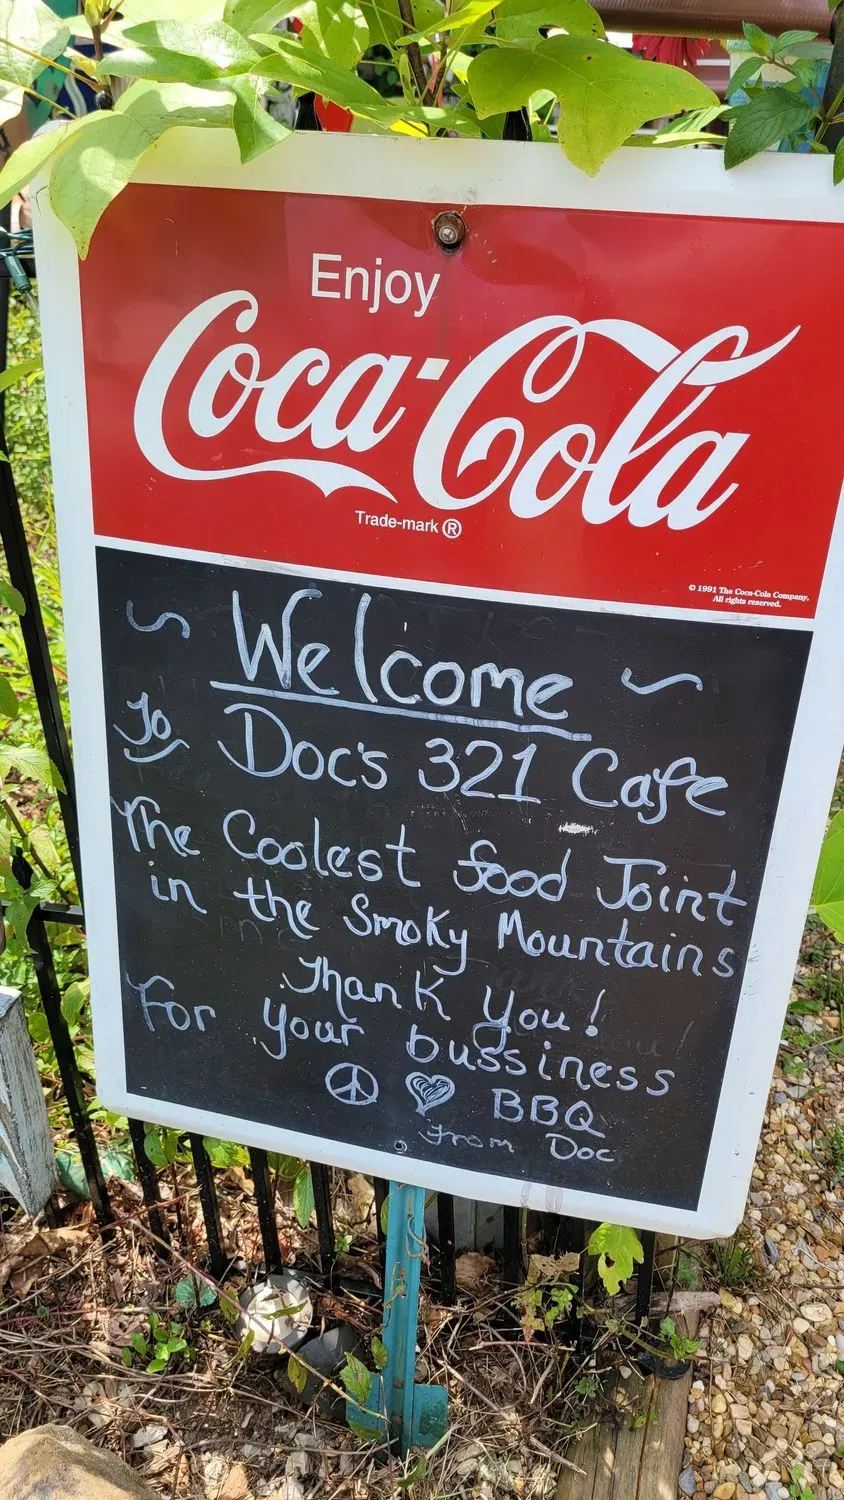 Enjoy
Coca-Cola
Trade-mark ®
© 1991 The Coca-Cola Company.
All rights reserved.
~ Welcome ~
To Doc's 321 Cafe
The Coolest food Joint
in the Smoky Mountains
Thank you!
For your bussiness
BBQ
From Doc